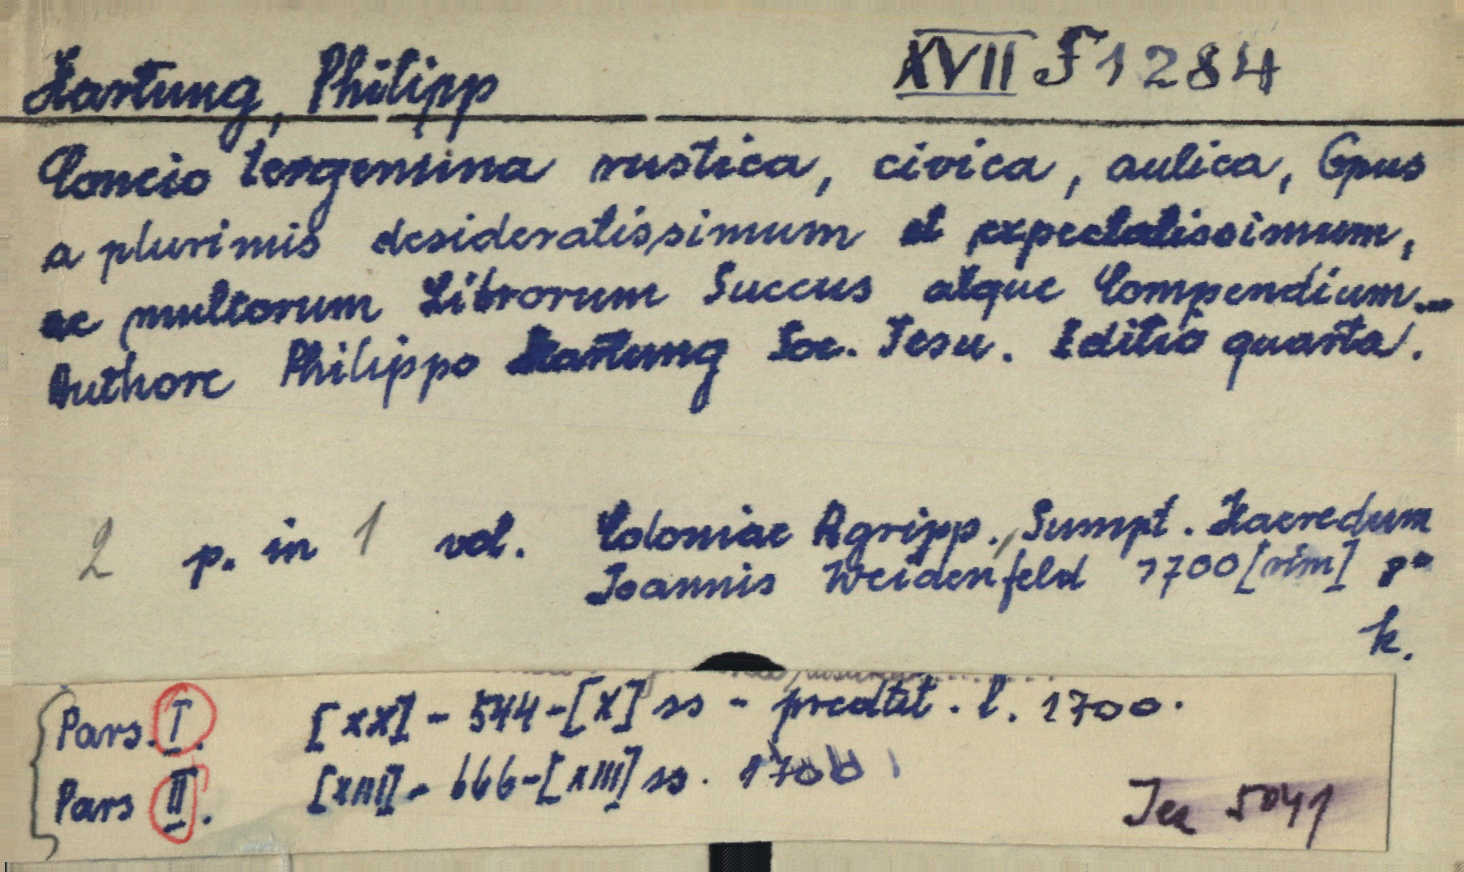 Hartung, Philipp XVII F 1284
Concio tergemina rustica, civica, aulica, Opus
a plurimis desideratissimum et expectatissimum,
ac multorum Librorum Succus atque Compendium...
Authore Philippo Hartung Soc. Jesu. Editio quarta.
2 p. in 1 vol. Coloniae Agripp., Sumpt. Haeredum
Joannis Weidenfeld 1700 [rim] 8°
k.
Pars. I. [XX] - 544 - [X] ss - předtit. l. 1700.
Pars II. [XIII] - 666 - [XIII] ss. 1700
Jes 5041